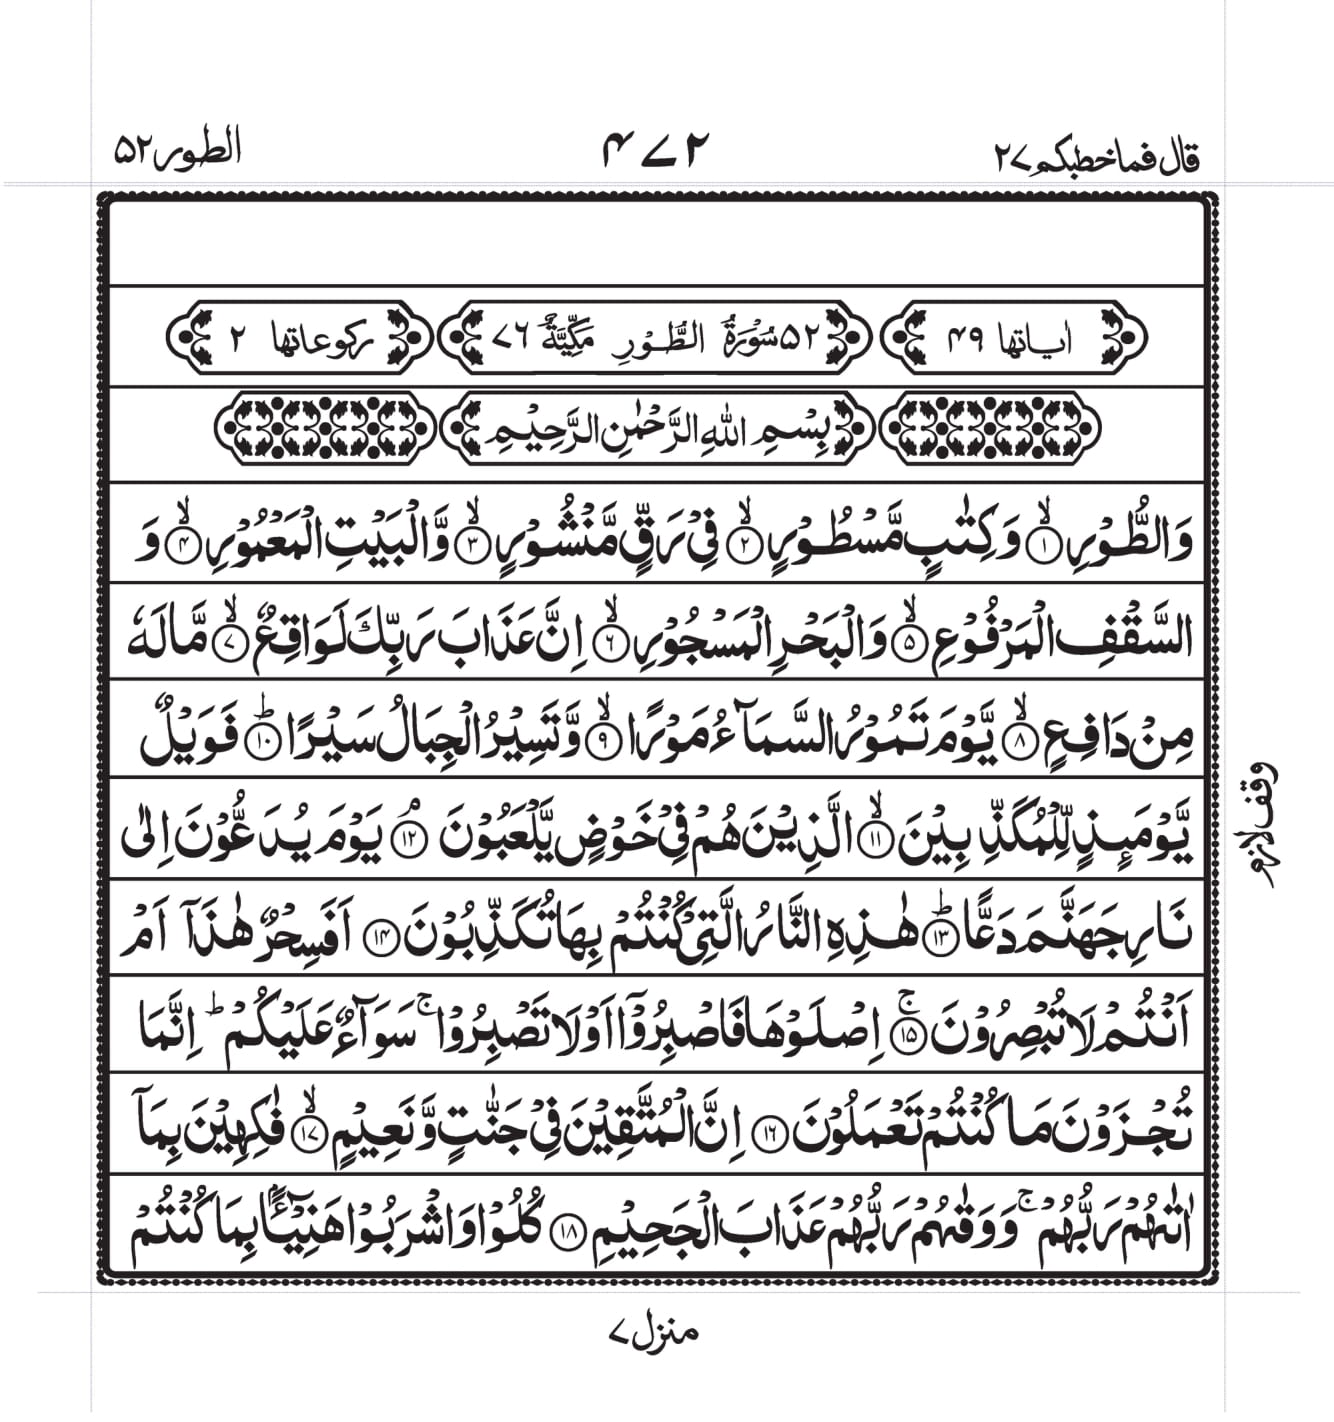 قال فما خطبكم ٢٧ ٤٧٢ الطور ٥٢
اٰیاتها ٤٩ ٥٢ سُوْرَةُ الطُّوْرِ مَكِّيَّةٌ ٧٦ ركوعاتها ٢
بِسْمِ اللّٰهِ الرَّحْمٰنِ الرَّحِيْمِ
وَالطُّوْرِ ۙ﴿١﴾ وَكِتٰبٍ مَّسْطُوْرٍ ۙ﴿٢﴾ فِيْ رَقٍّ مَّنْشُوْرٍ ۙ﴿٣﴾ وَّالْبَيْتِ الْمَعْمُوْرِ ۙ﴿٤﴾ وَ
السَّقْفِ الْمَرْفُوْعِ ۙ﴿٥﴾ وَالْبَحْرِ الْمَسْجُوْرِ ۙ﴿٦﴾ اِنَّ عَذَابَ رَبِّكَ لَوَاقِعٌ ۙ﴿٧﴾ مَّا لَهٗ
مِنْ دَافِعٍ ۙ﴿٨﴾ يَّوْمَ تَمُوْرُ السَّمَآءُ مَوْرًا ۙ﴿٩﴾ وَّتَسِيْرُ الْجِبَالُ سَيْرًا ؕ﴿١٠﴾ فَوَيْلٌ
يَّوْمَىِٕذٍ لِّلْمُكَذِّبِيْنَ ۙ﴿١١﴾ الَّذِيْنَ هُمْ فِيْ خَوْضٍ يَّلْعَبُوْنَ ۘ﴿١٢﴾ يَوْمَ يُدَعُّوْنَ اِلٰى
نَارِ جَهَنَّمَ دَعًّا ؕ﴿١٣﴾ هٰذِهِ النَّارُ الَّتِيْ كُنْتُمْ بِهَا تُكَذِّبُوْنَ ﴿١٤﴾ اَفَسِحْرٌ هٰذَآ اَمْ
اَنْتُمْ لَا تُبْصِرُوْنَ ۚ﴿١٥﴾ اِصْلَوْهَا فَاصْبِرُوْٓا اَوْ لَا تَصْبِرُوْا ۚ سَوَآءٌ عَلَيْكُمْ ؕ اِنَّمَا
تُجْزَوْنَ مَا كُنْتُمْ تَعْمَلُوْنَ ﴿١٦﴾ اِنَّ الْمُتَّقِيْنَ فِيْ جَنّٰتٍ وَّنَعِيْمٍ ۙ﴿١٧﴾ فٰكِهِيْنَ بِمَآ
اٰتٰىهُمْ رَبُّهُمْ ۚ وَوَقٰىهُمْ رَبُّهُمْ عَذَابَ الْجَحِيْمِ ﴿١٨﴾ كُلُوْا وَاشْرَبُوْا هَنِيْٓئًۢا بِمَا كُنْتُمْ
وقف لازم
منزل ٧